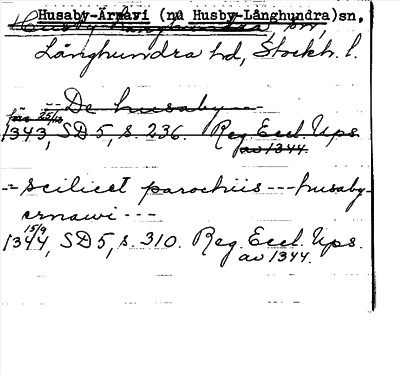 Husaby-Ärnävi (nu Husby-Långhundra)sn,
Husby-Långhundra, sn,
Långhundra hd, Stockh. l.
-- De husaby --
före 25/12
1343, SD 5, s. 236. Reg. Eccl. Ups.
av 1344.
-- scilicet parochiis --- husaby-
ernawi ---
15/9
1344, SD 5, s. 310. Reg. Eccl. Ups.
av 1344.